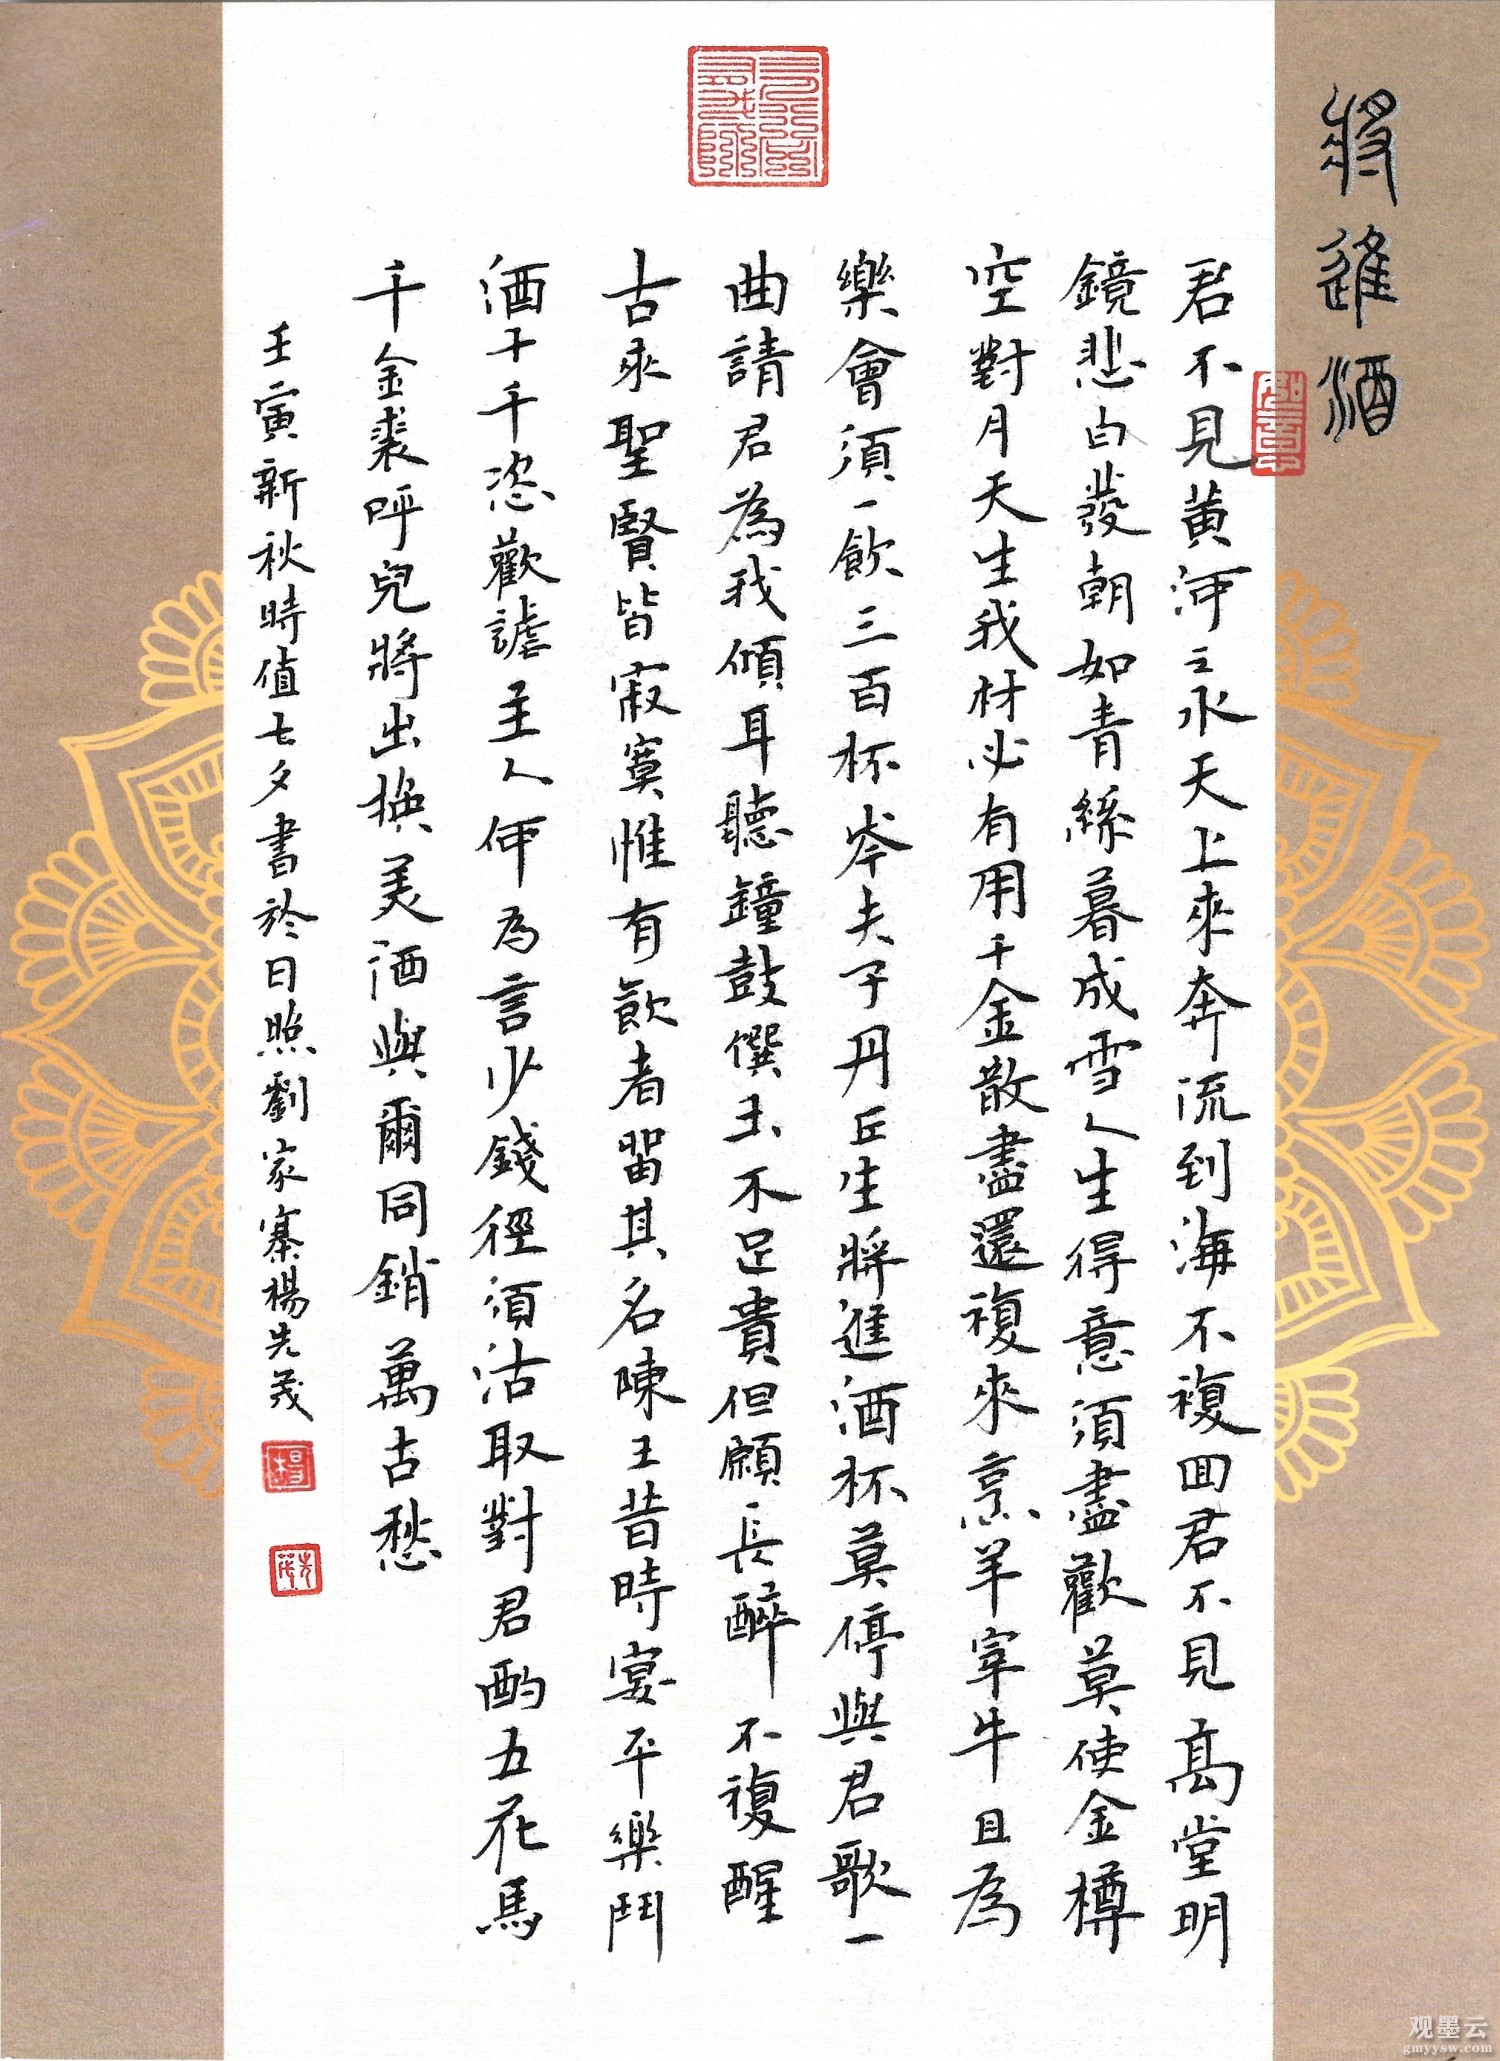 將進酒
君不見黃河之水天上來奔流到海不複回君不見高堂明
鏡悲白發朝如青絲暮成雪人生得意須盡歡莫使金樽
空對月天生我材必有用千金散盡還複來烹羊宰牛且為
樂會須一飲三百杯岑夫子丹丘生將進酒杯莫停與君歌一
曲請君為我傾耳聽鐘鼓饌玉不足貴但願長醉不複醒
古來聖賢皆寂寞惟有飲者留其名陳王昔時宴平樂鬥
酒十千恣歡謔主人何為言少錢徑須沽取對君酌五花馬
千金裘呼兒將出換美酒與爾同銷萬古愁
壬寅新秋時值七夕書於日照劉家寨楊先茂
楊
先茂
观墨云
gmyysw.com